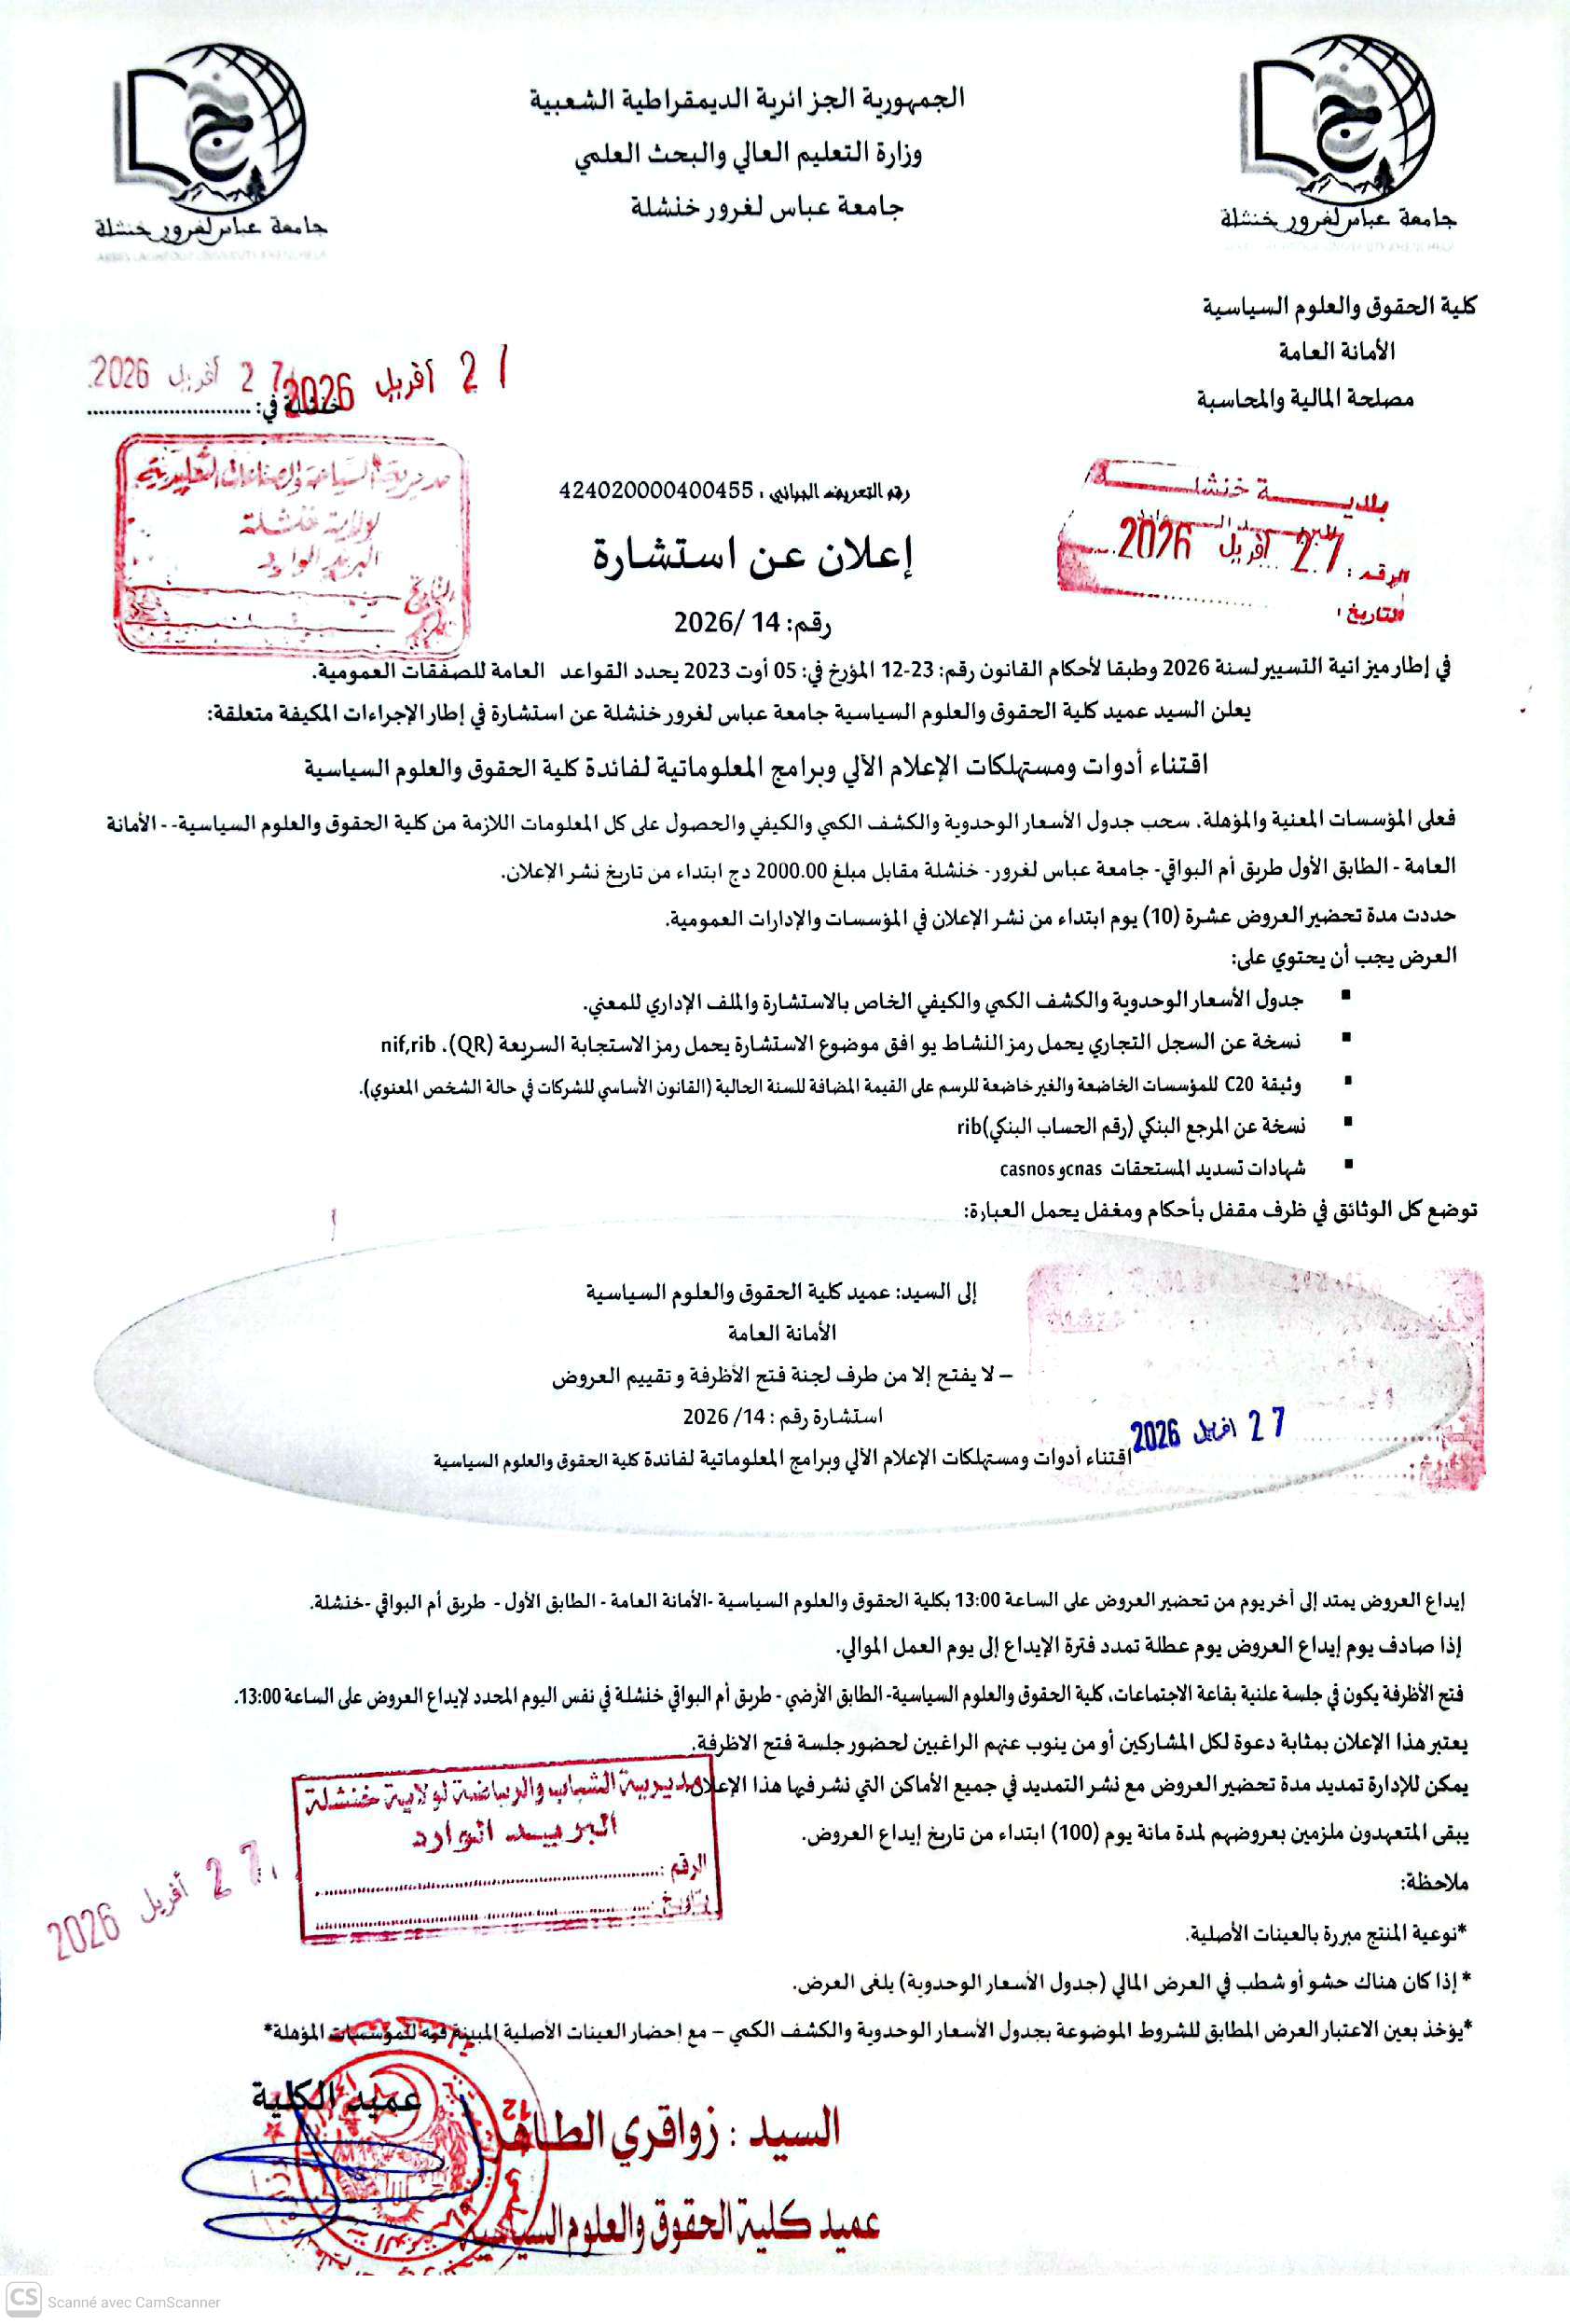 الجمهورية الجزائرية الديمقراطية الشعبية
وزارة التعليم العالي والبحث العلمي
جامعة عباس لغرور خنشلة
جامعة عباس لغرور خنشلة
جامعة عباس لغرور خنشلة
كلية الحقوق والعلوم السياسية
الأمانة العامة
مصلحة المالية والمحاسبة
27 أفريل 2026
21 أفريل 2026
خنشلة في:
مديرية السياحة والصناعات التقليدية
لولاية خنشلة
البريد الوارد
التاريخ
بلديـــة خنشلـــة
البريـــد الـــوارد
27 أفريل 2026
الرقم :
التاريخ :
رقم التعريف الجبائي : 424020000400455
إعلان عن استشارة
رقم: 14 /2026
في إطار ميزانية التسيير لسنة 2026 وطبقا لأحكام القانون رقم: 23-12 المؤرخ في: 05 أوت 2023 يحدد القواعد العامة للصفقات العمومية.
يعلن السيد عميد كلية الحقوق والعلوم السياسية جامعة عباس لغرور خنشلة عن استشارة في إطار الإجراءات المكيفة متعلقة:
اقتناء أدوات ومستهلكات الإعلام الآلي وبرامج المعلوماتية لفائدة كلية الحقوق والعلوم السياسية
فعلى المؤسسات المعنية والمؤهلة. سحب جدول الأسعار الوحدوية والكشف الكمي والكيفي والحصول على كل المعلومات اللازمة من كلية الحقوق والعلوم السياسية- - الأمانة
العامة - الطابق الأول طريق أم البواقي- جامعة عباس لغرور- خنشلة مقابل مبلغ 2000.00 دج ابتداء من تاريخ نشر الإعلان.
حددت مدة تحضير العروض عشرة (10) يوم ابتداء من نشر الإعلان في المؤسسات والإدارات العمومية.
العرض يجب أن يحتوي على:
▪ جدول الأسعار الوحدوية والكشف الكمي والكيفي الخاص بالاستشارة والملف الإداري للمعني.
▪ نسخة عن السجل التجاري يحمل رمز النشاط يوافق موضوع الاستشارة يحمل رمز الاستجابة السريعة (QR)، nif,rib
▪ وثيقة C20 للمؤسسات الخاضعة والغير خاضعة للرسم على القيمة المضافة للسنة الحالية (القانون الأساسي للشركات في حالة الشخص المعنوي).
▪ نسخة عن المرجع البنكي (رقم الحساب البنكي)rib
▪ شهادات تسديد المستحقات cnasوcasnos
توضع كل الوثائق في ظرف مقفل بأحكام ومغفل يحمل العبارة:
إلى السيد: عميد كلية الحقوق والعلوم السياسية
الأمانة العامة
– لا يفتح إلا من طرف لجنة فتح الأظرفة و تقييم العروض
استشارة رقم : 14/ 2026
27 أفريل 2026
اقتناء أدوات ومستهلكات الإعلام الآلي وبرامج المعلوماتية لفائدة كلية الحقوق والعلوم السياسية
إيداع العروض يمتد إلى أخر يوم من تحضير العروض على الساعة 13:00 بكلية الحقوق والعلوم السياسية -الأمانة العامة - الطابق الأول - طريق أم البواقي -خنشلة.
إذا صادف يوم إيداع العروض يوم عطلة تمدد فترة الإيداع إلى يوم العمل الموالي.
فتح الأظرفة يكون في جلسة علنية بقاعة الاجتماعات، كلية الحقوق والعلوم السياسية- الطابق الأرضي - طريق أم البواقي خنشلة في نفس اليوم المحدد لإيداع العروض على الساعة 13:00.
يعتبر هذا الإعلان بمثابة دعوة لكل المشاركين أو من ينوب عنهم الراغبين لحضور جلسة فتح الاظرفة.
يمكن للإدارة تمديد مدة تحضير العروض مع نشر التمديد في جميع الأماكن التي نشر فيها هذا الإعلان
يبقى المتعهدون ملزمين بعروضهم لمدة مانة يوم (100) ابتداء من تاريخ إيداع العروض.
مديرية الشباب والرياضة لولاية خنشلة
البريـــد الوارد
الرقم :
بتاريخ :
27 أفريل 2026
ملاحظة:
*نوعية المنتج مبررة بالعينات الأصلية.
* إذا كان هناك حشو أو شطب في العرض المالي (جدول الأسعار الوحدوية) يلغى العرض.
*يؤخذ بعين الاعتبار العرض المطابق للشروط الموضوعة بجدول الأسعار الوحدوية والكشف الكمي – مع إحضار العينات الأصلية المبينة فيه للمؤسسات المؤهلة*
عميد الكلية
السيد : زواقري الطاهر
عميد كلية الحقوق والعلوم السياسية
CS Scanné avec CamScanner